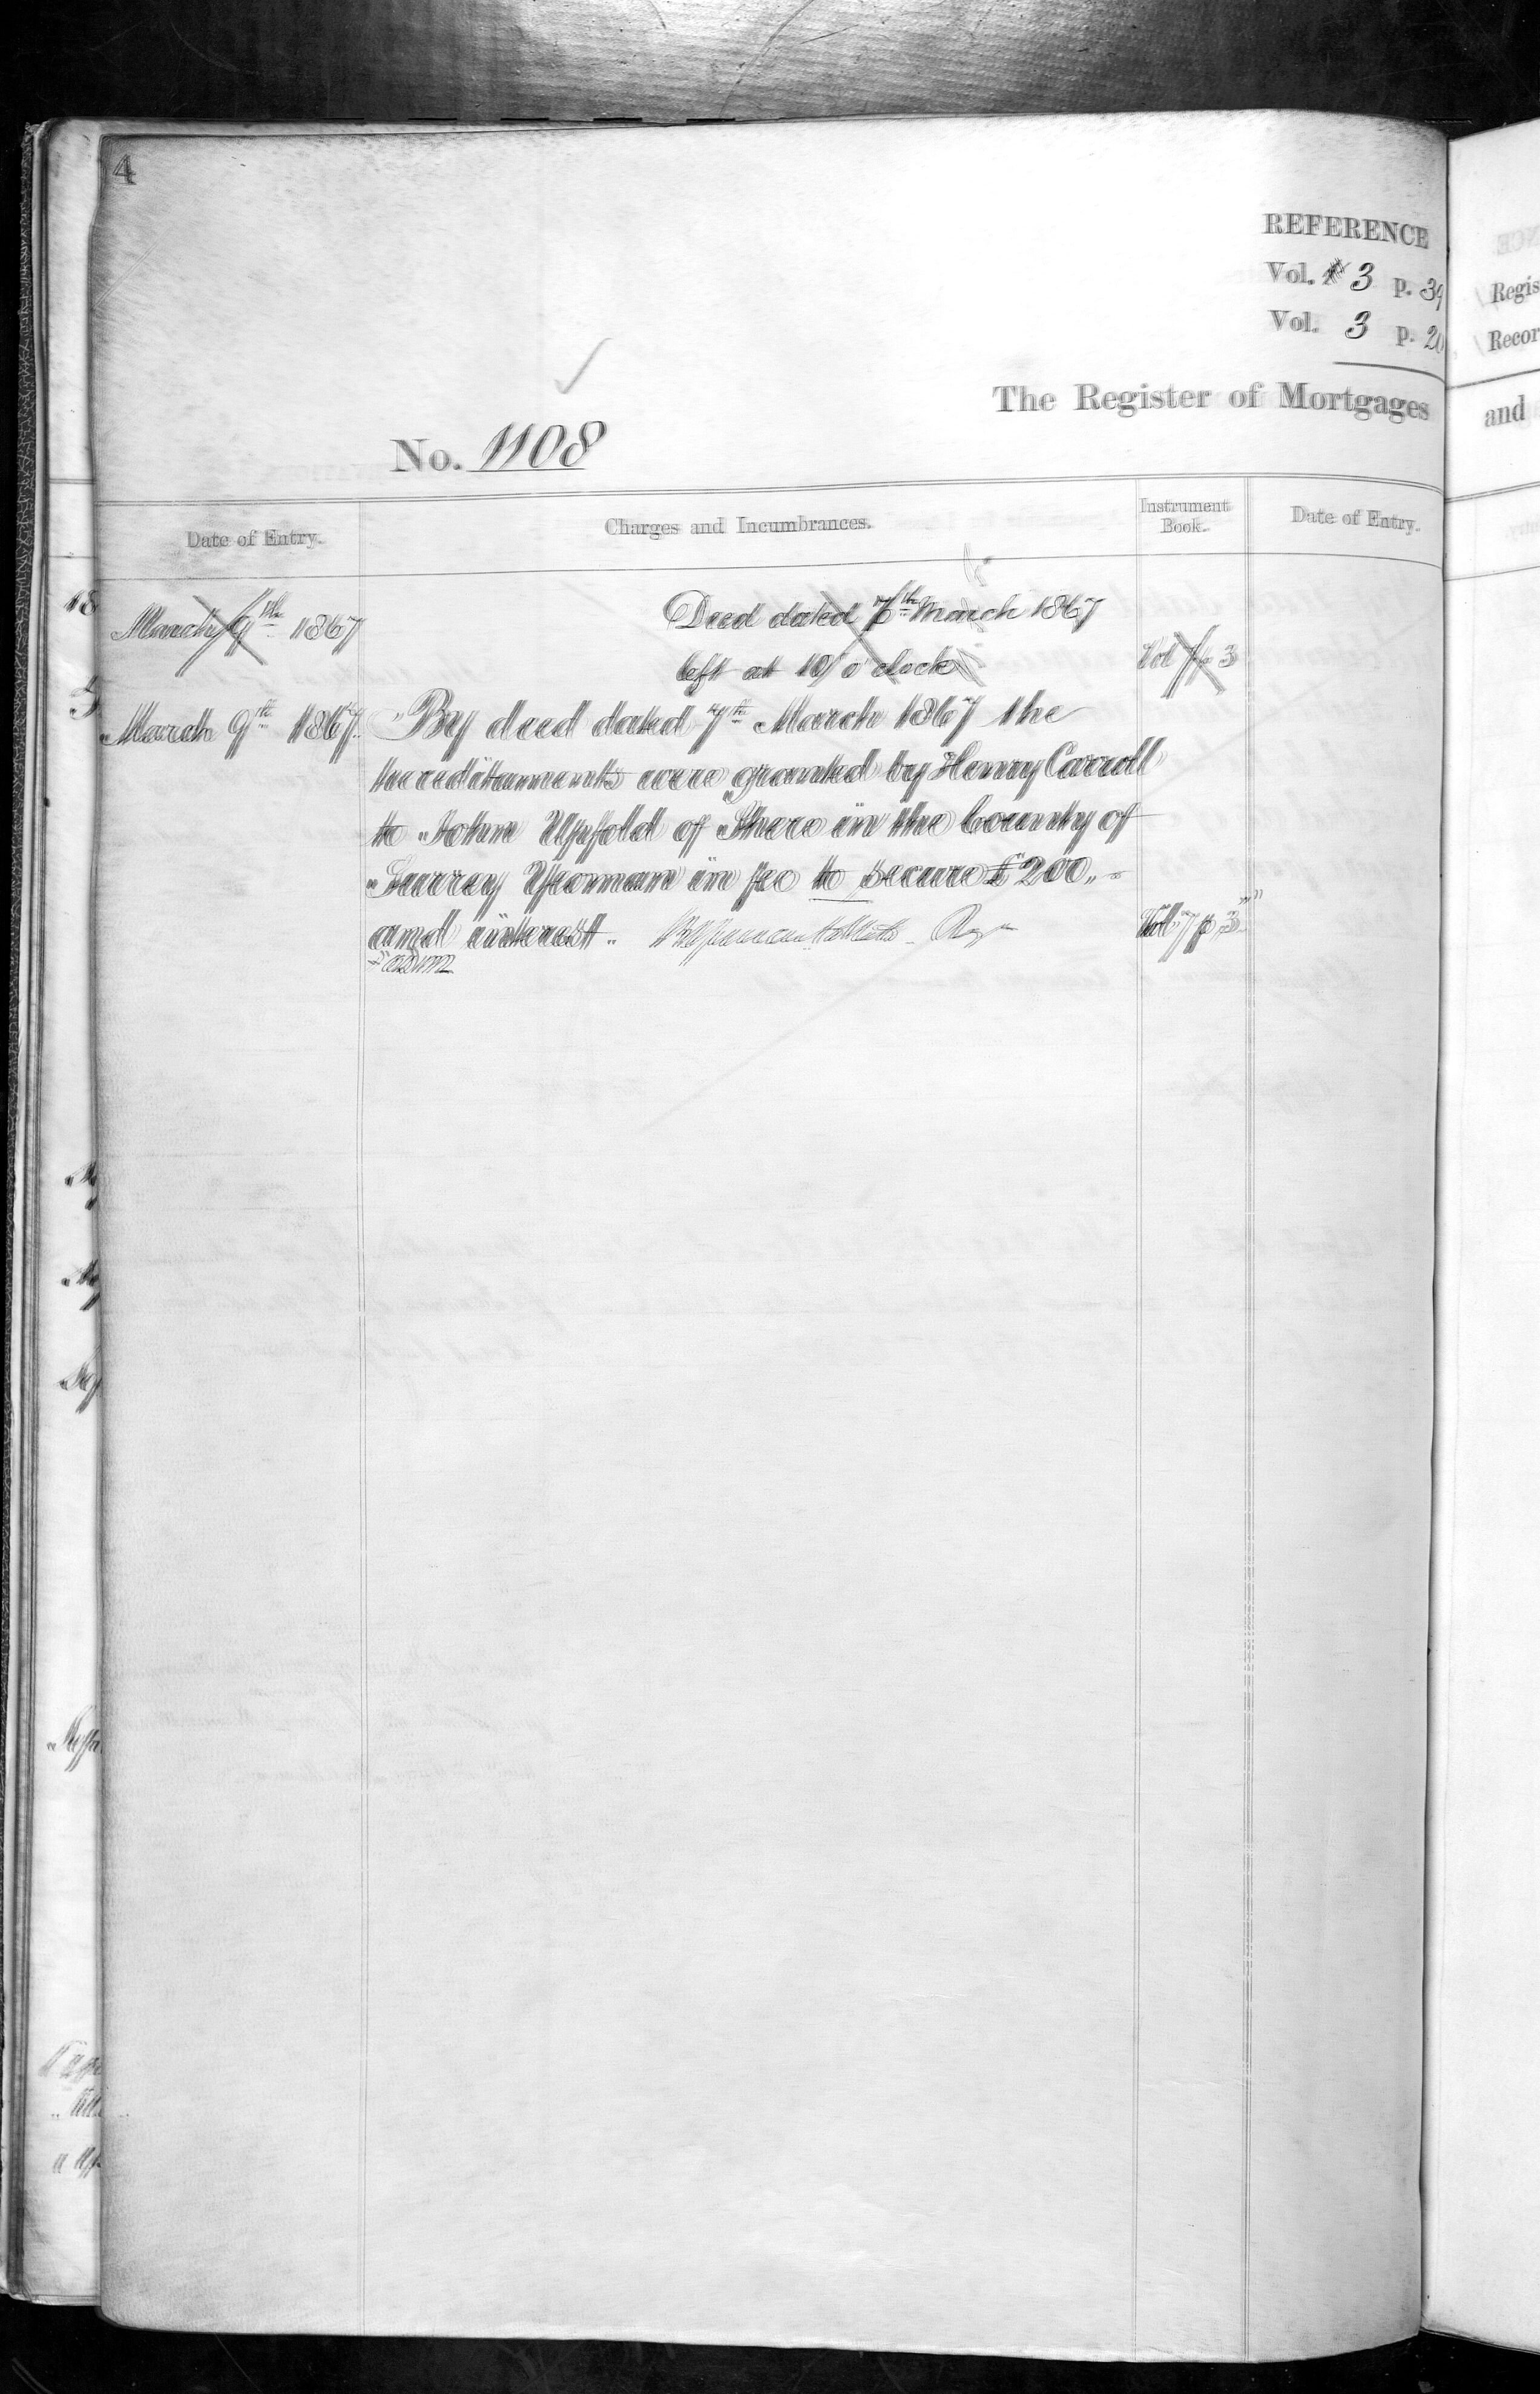 4
REFERENCE
Vol. 3 p. 39
Vol. 3 p. 20
The Register of Mortgages
No. 1108
Date of Entry.
Charges and Incumbrances.
Instrument Book.
Date of Entry.
March 9th 1867
Deed dated 7th March 1867
left at 10 o'clock
Vol 7 p 3
March 9th 1867.
By deed dated 7th March 1867 the
hereditaments were granted by Henry Carroll
to John Upfold of Shere in the County of
Surrey Yeoman in fee to secure £200..
and interest.
Vol. 7 p 3
and
Regis
Recor